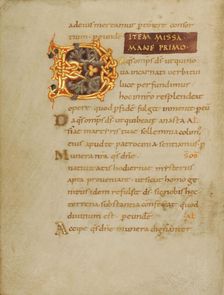 ad eius mereamur consor
tium peunde
ITEM MISSA
MANE PRIMO
DA qs omps ds ut qui noua
incarnati uerbi tui
luce perfundimur
hoc in nro resplendeat
opere quod p fidē fulget in mente p
Da qs omps ds ut qui beatae anasta
siae martyris tuae sollemnia colim
eius apud te patrocinia sentiamus p
Munera nra qs dne
natiuitatis hodiernae mysteriis
apta proueniant ut sicut homo geni
tus idem refulsit ds sic nobis haec
terrena substantia conferat quod
diuinum est peunde
Accipe qs dne munera dignanter